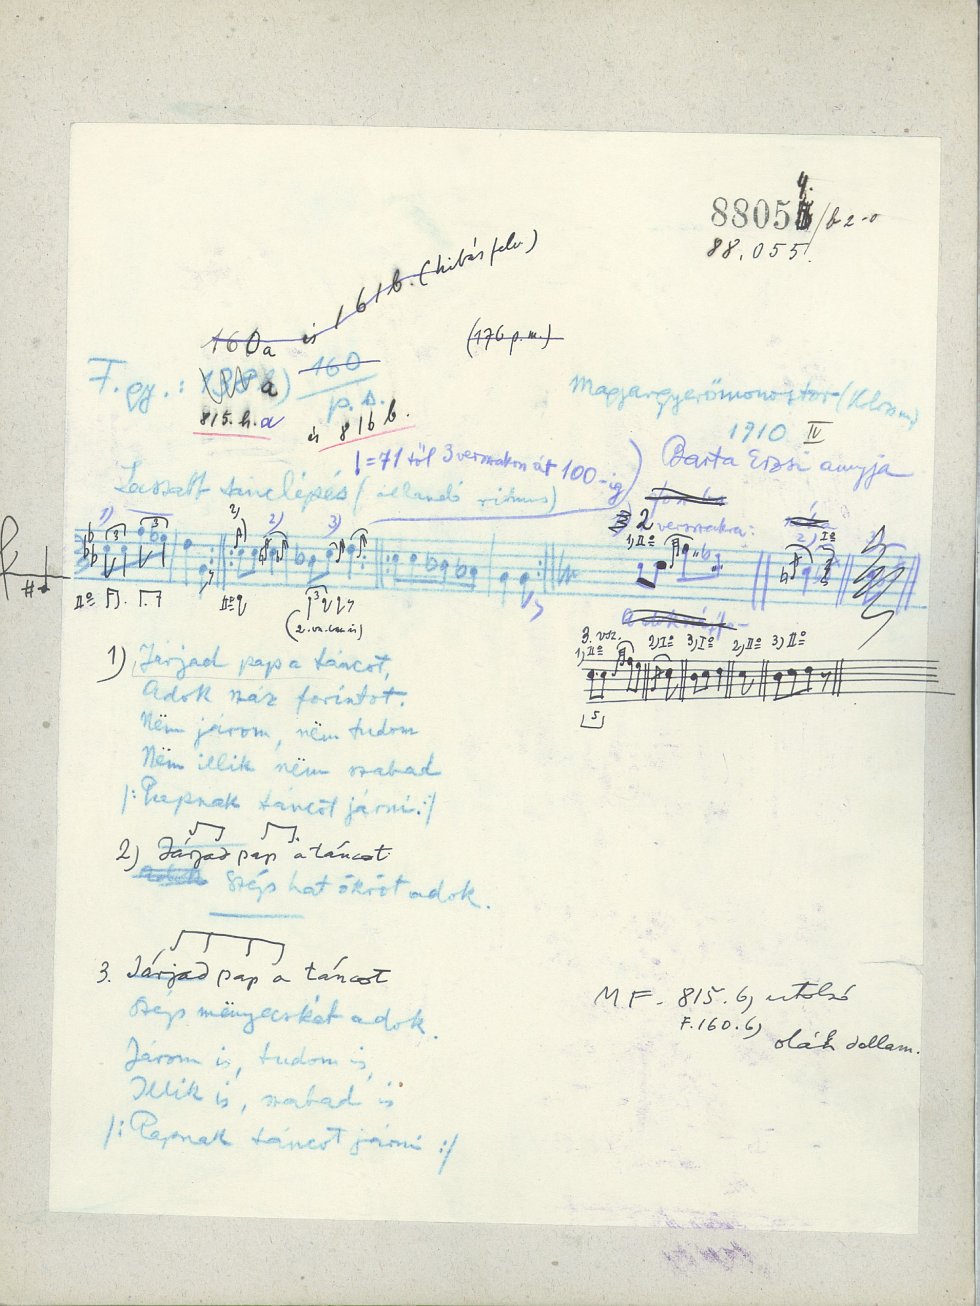 88054/b 2-o
88.055.
160a és 161b. (hibás felv.)
(176 p.m.)
F. gy.: a) 160
p. s.
815. h. a és 816 b.
Magyargyerőmonostor (Kolozs)
1910 IV
Barta Erzsi anyja
=71 től 3 versszakon át 100-ig
Lassatt tánclépés (állandó ritmus)
2 versszakra:
1) 2) 2) 3)
3
3
3
3. vsz.
1) IIº 2) Iº 3) Iº 2) IIº 3) IIº
5
1) Járjad pap a táncot,
Adok száz forintot.
Nëm járom, nëm tudom
Nëm illik nëm szabad
/: Papnak táncot járni :/
2) Járjad pap a táncot
Szép hat ökröt adok.
3. Járjad pap a táncot
Szép mënyecskét adok.
Járom is, tudom is,
Illik is, szabad is
/: Papnak táncot járni :/
MF. 815. b) utolsó
F. 160. b)
oláh dallam.